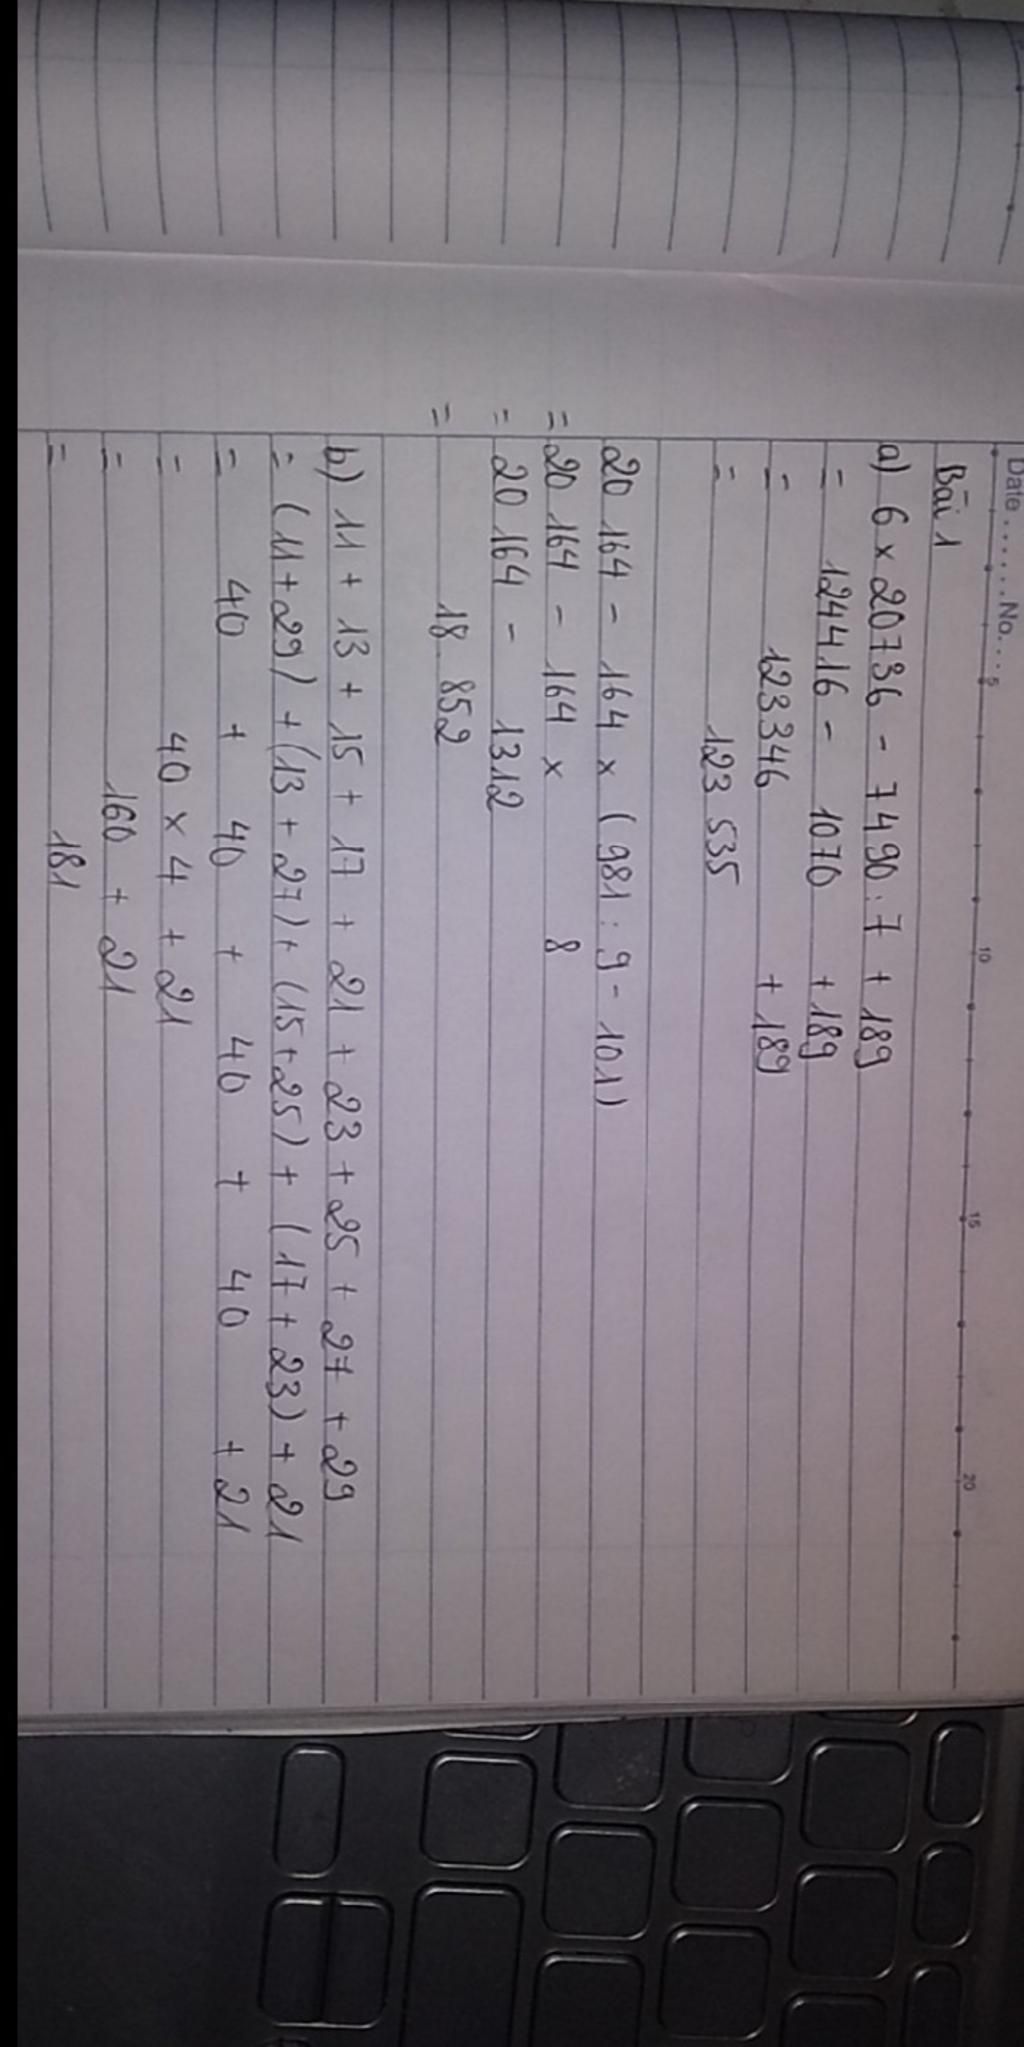 Date......No....
5 10 15 20
Bài 1
a) 6 × 20736 - 7490 : 7 + 189
= 124416 - 1070 + 189
= 123346 + 189
= 123 535
20 164 - 164 × (981 : 9 - 101)
= 20 164 - 164 × 8
= 20 164 - 1312
= 18 852
b) 11 + 13 + 15 + 17 + 21 + 23 + 25 + 27 + 29
= (11 + 29) + (13 + 27) + (15 + 25) + (17 + 23) + 21
= 40 + 40 + 40 + 40 + 21
= 40 × 4 + 21
= 160 + 21
= 181